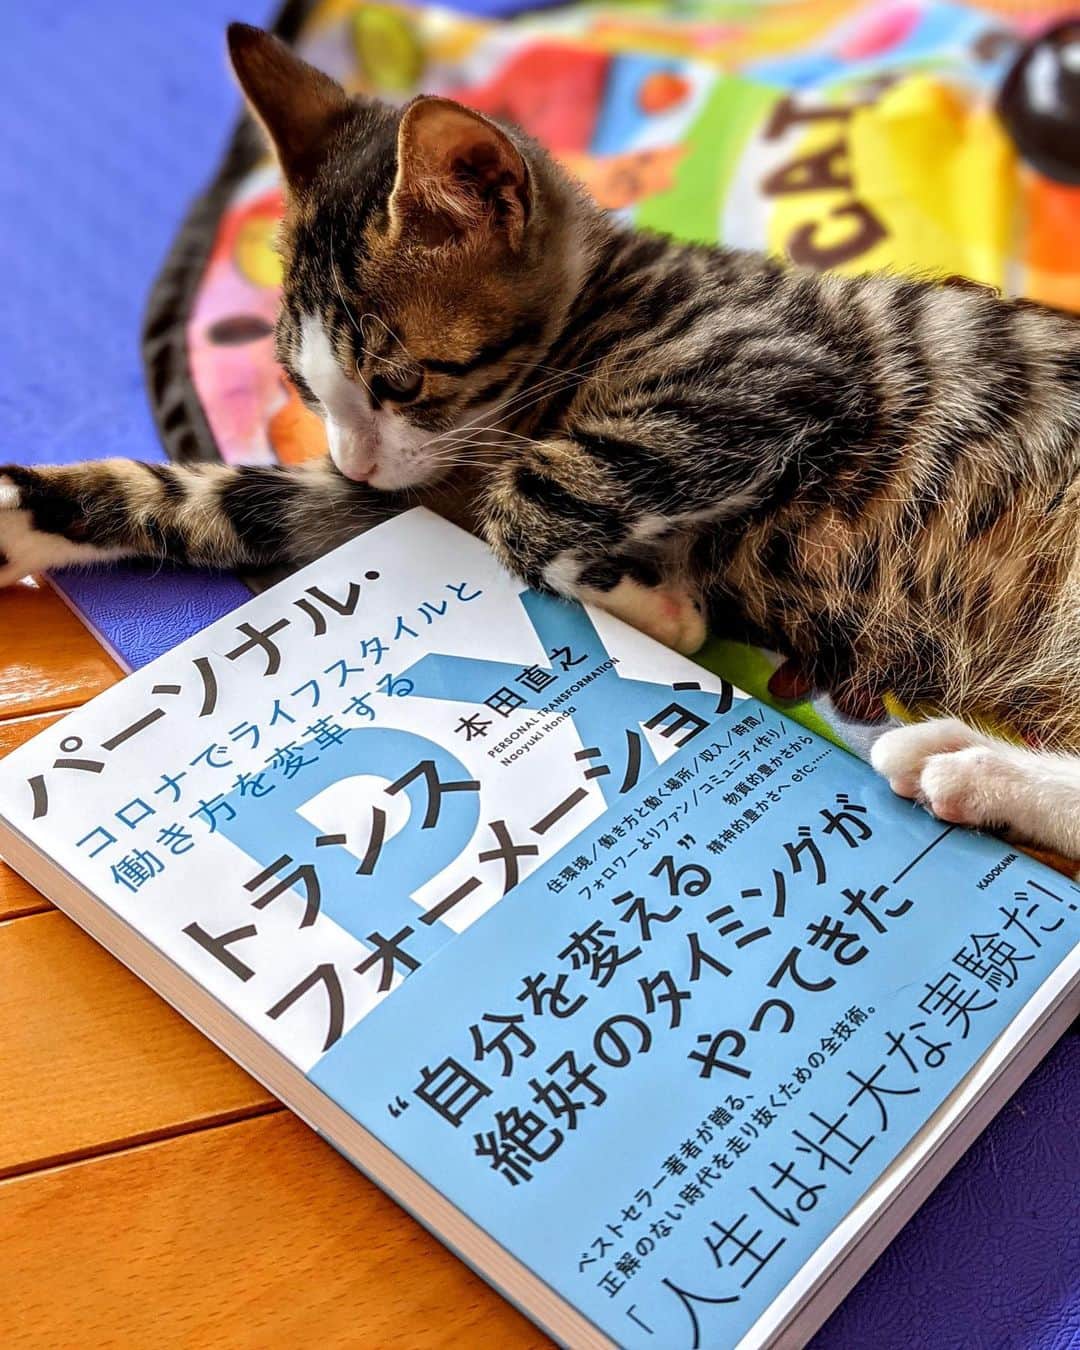 CAT
パーソナル・
トランス
フォーメーション
コロナでライフスタイルと
働き方を変革する
本田直之
PERSONAL TRANSFORMATION
Naoyuki Honda
住環境/働き方と働く場所/収入/時間/
フォロワーよりファン/コミュニティ作り/
物質的豊かさから
精神的豊かさへ etc.……
“自分を変える”
絶好のタイミングが
やってきた――
KADOKAWA
ベストセラー著者が贈る、
正解のない時代を走り抜くための全技術。
「人生は壮大な実験だ!